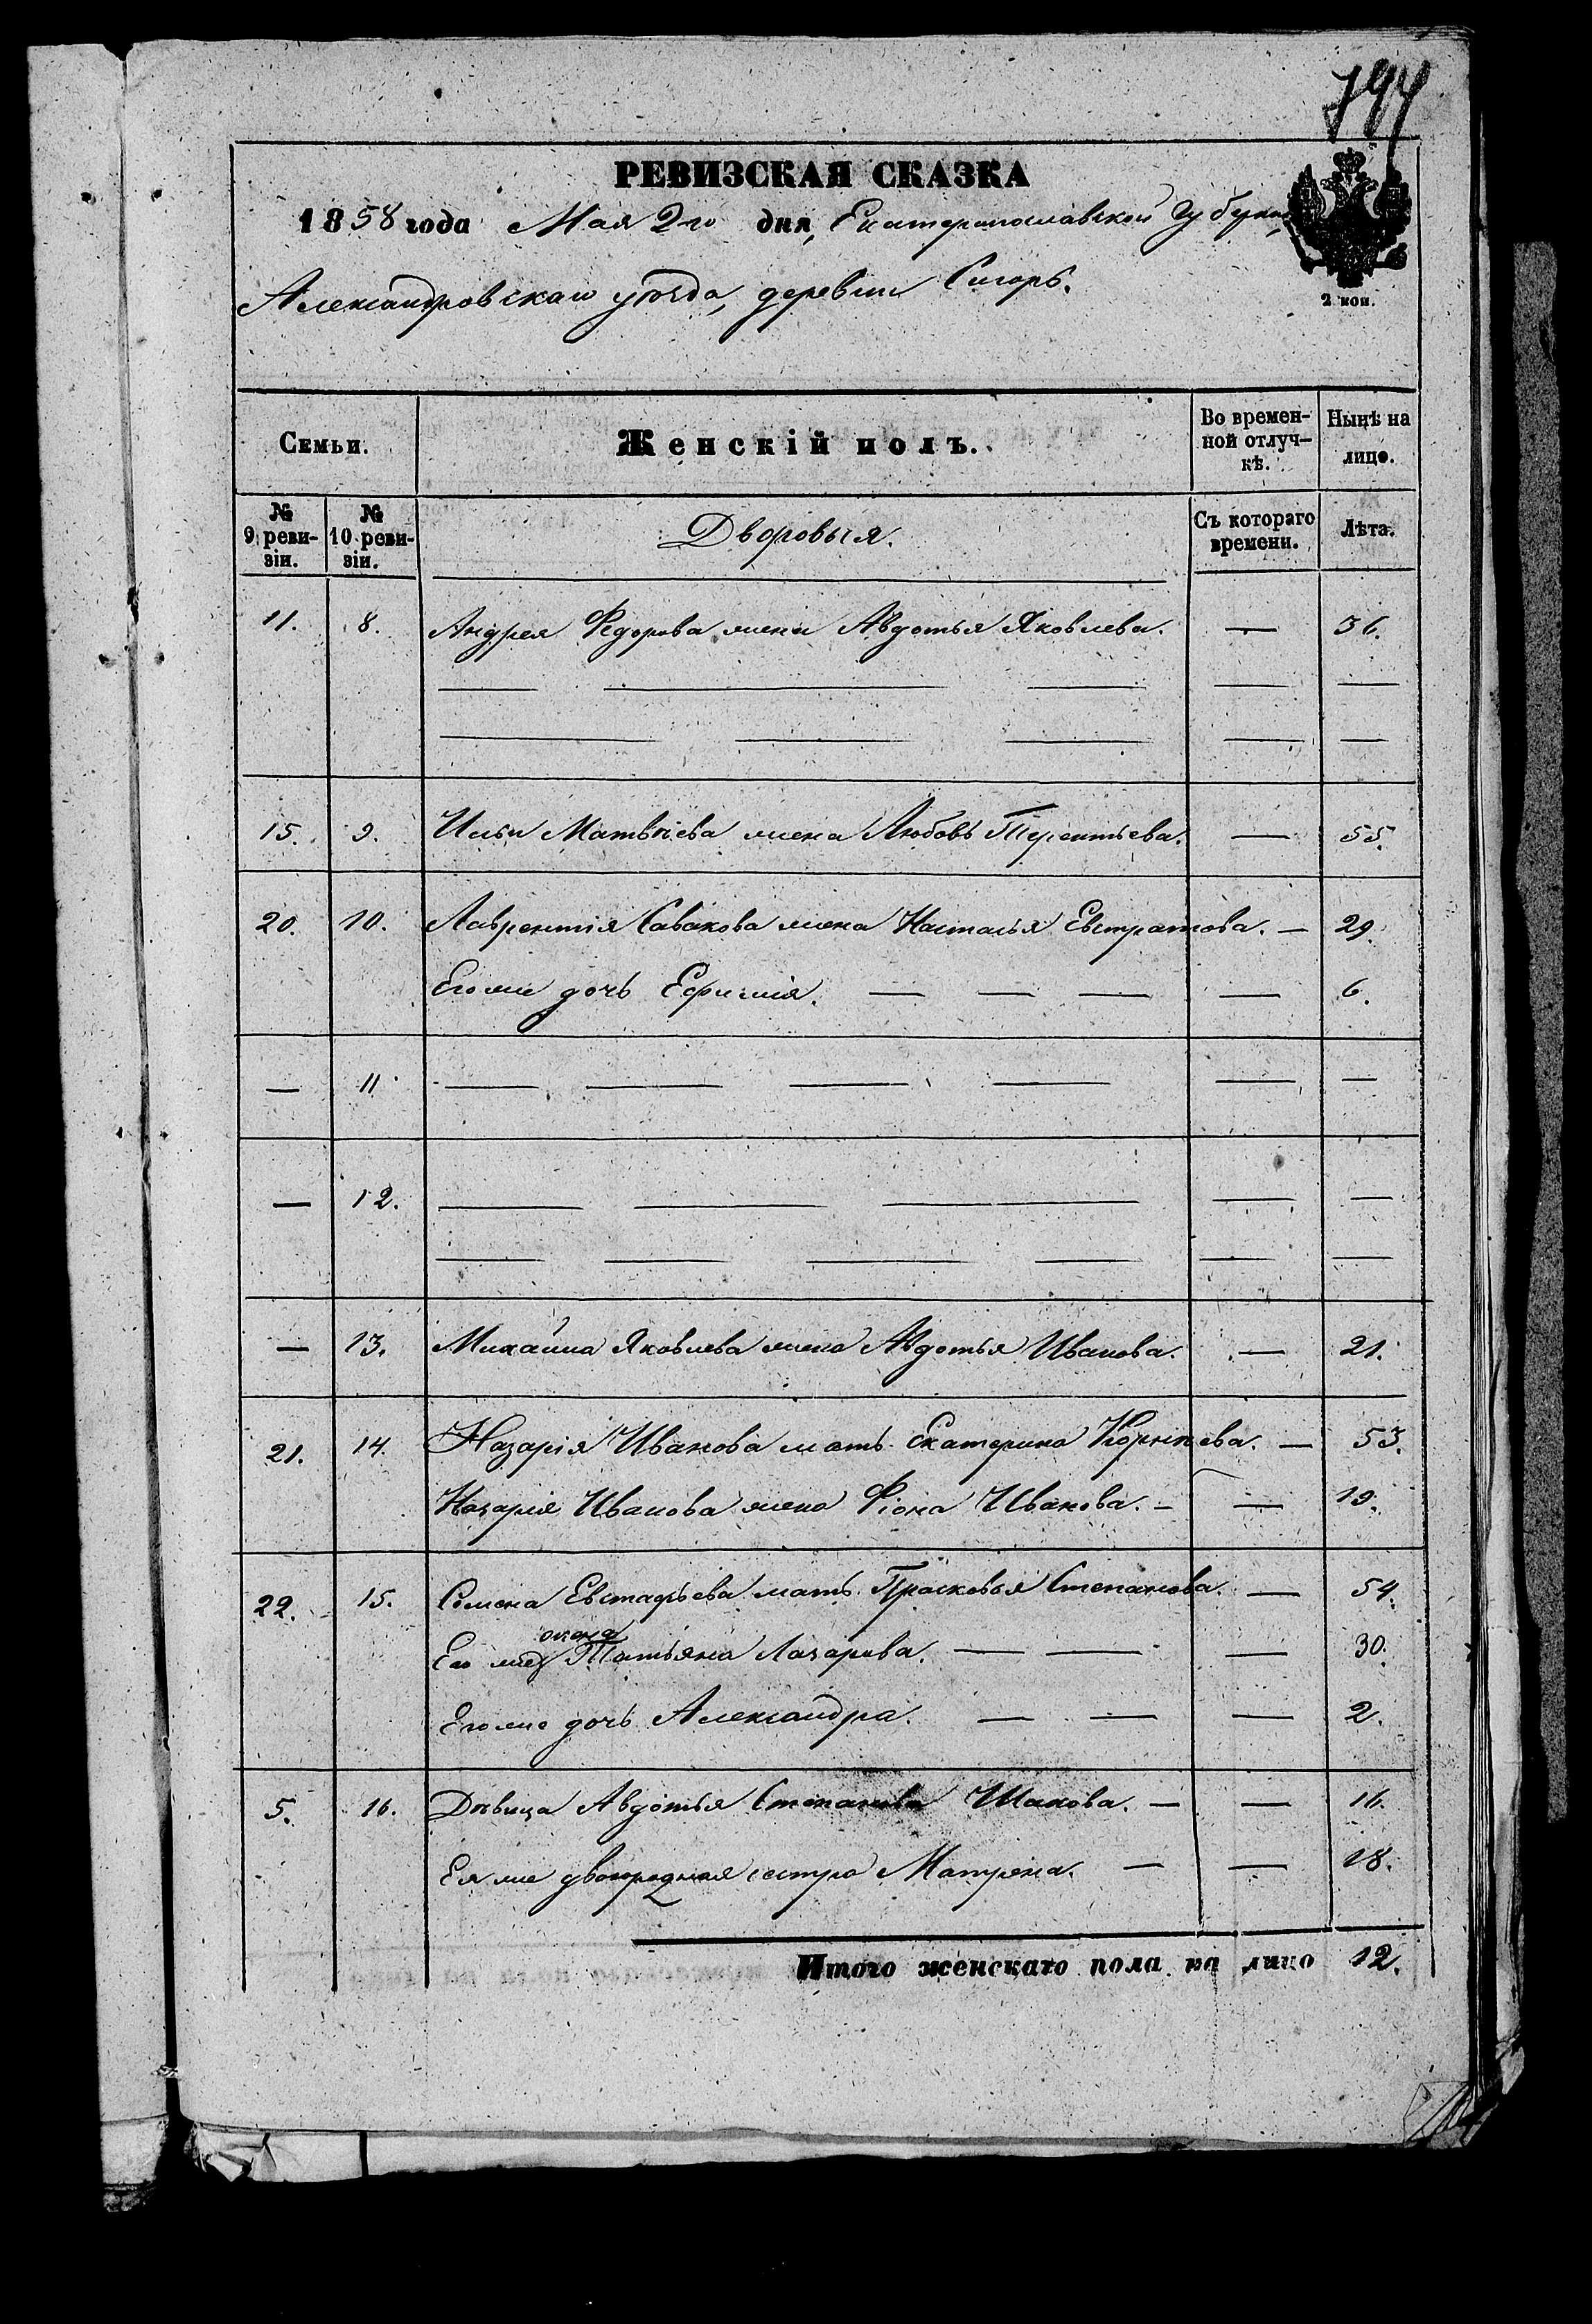 794
РЕВИЗСКАЯ СКАЗКА
1858 года Мая 2го дня, Екатеринославской Губерніи,
Александровскаго уѣзда, деревни
2 коп.
Семьи. Женскій полъ. Во времен-ной отлуч-кѣ. Нынѣ на лицо.
№ 9 реви-зіи. № 10 реви-зіи. Дворовыя. Съ котораго времени. Лѣта.
11. 8. Андрея Федорова жена Авдотья Яковлева. — 36.
15. 9. Ильи Матвѣева жена Любовь Терентьева. — 55.
20. 10. Лаврентія Савакова жена Настасья Евстратова. — 29.
Его же дочь Ефимія. — — — — 6.
— 11. — — — — — —
— 12. — — — — —
— 13. Михайла Яковлева жена Авдотья Иванова. — 21.
21. 14. Назарія Иванова мать Екатерина Корнѣева. — 53.
Назарія Иванова жена Фіона Иванова. — — 19.
22. 15. Семена Евстафьева мать Прасковья Степанова. — 54.
жена
Его же Татьяна Лазарева. — — — 30.
Его же дочь Александра. — — — 2.
5. 16. Дѣвица Авдотья Степанова Шакова. — — 16.
Ея же двоюродная сестра Матрена. — — 18.
Итого женскаго пола на лицо 12.